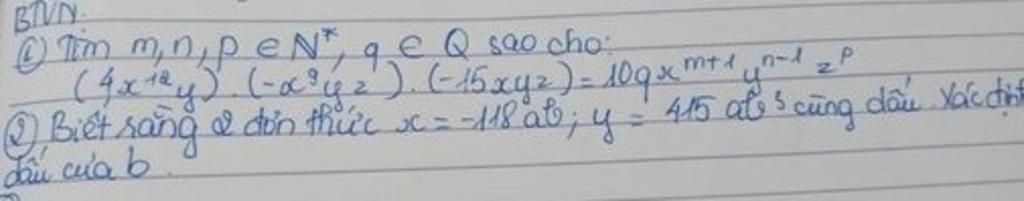 BTVN.
① Tìm m, n, p ∈ N*, q ∈ Q sao cho:
(4x¹²y) . (-x⁹yz) . (-15xyz) = 10qx^{m+1} y^{n-1} z^p
②, Biết rằng 2 đơn thức x = -118ab; y = 415 ab³ cùng dấu. Xác định
dấu của b.